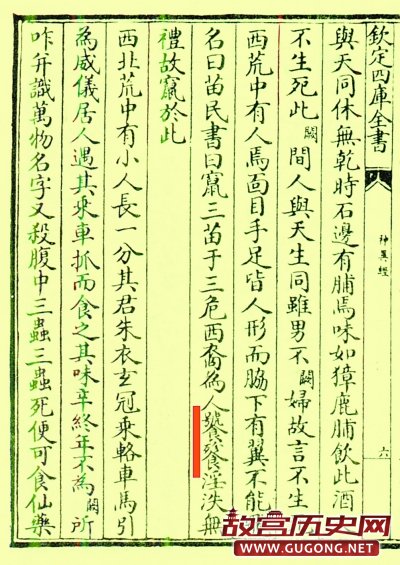 欽定四庫全書
神異經
六
與天同休無乾時石邊有脯焉味如獐鹿脯飲此酒
不生死此闕間人與天生同雖男不闕婦故言不生
西荒中有人焉面目手足皆人形而脇下有翼不能
名曰苗民書曰竄三苗于三危西裔為人饕餮淫泆無
禮故竄於此
西北荒中有小人長一分其君朱衣玄冠乘輅車馬引
為威儀居人遇其乘車抓而食之其味辛終年不為闕所
咋并識萬物名字又殺腹中三蟲三蟲死便可食仙藥
故宫历史网
WWW.GUGONG.NET